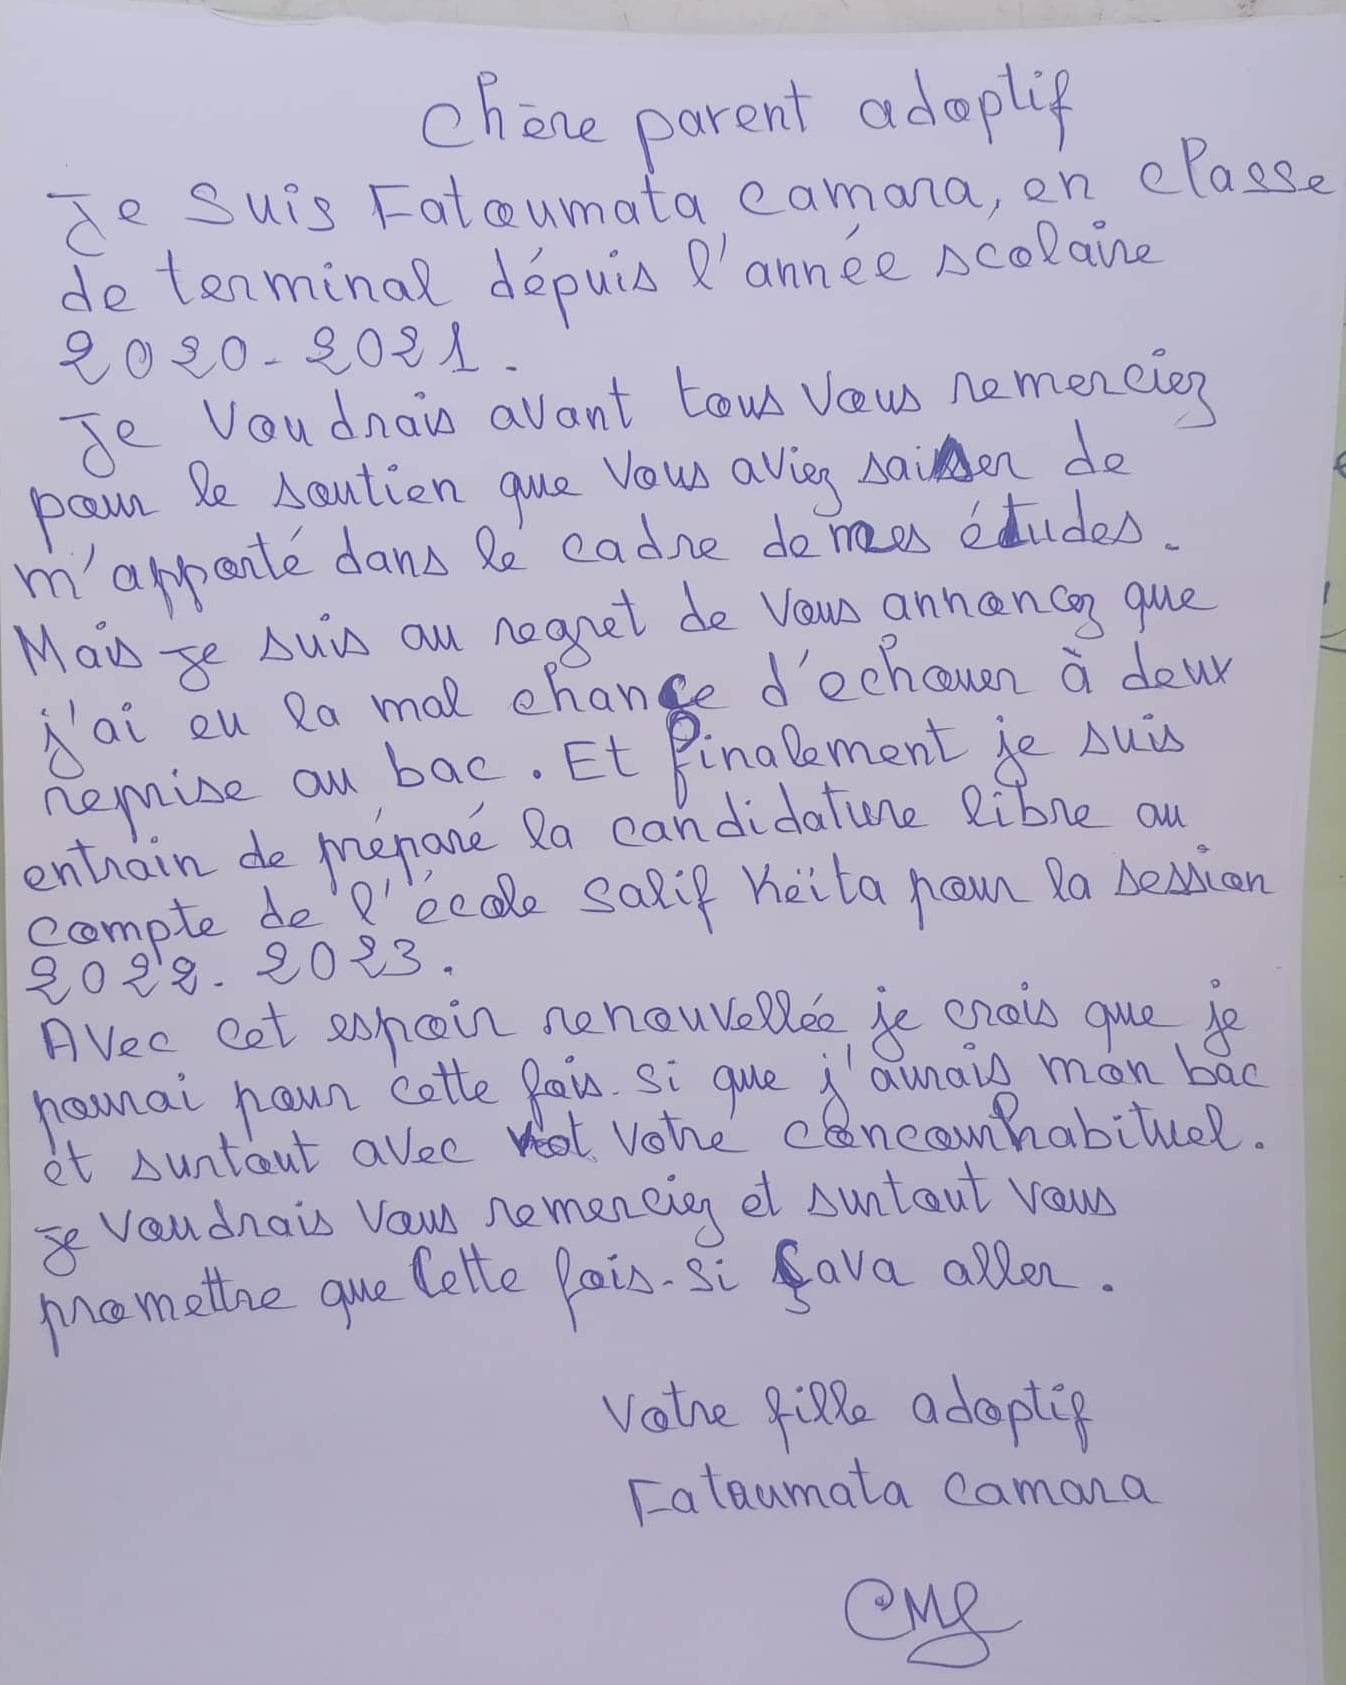 Chère parent adoptif
Je Suis Fatoumata camara, en classe
de terminal dépuis l'année scolaire
2020-2021.
Je Voudrais avant tous Vous remerciez
pour le soutien que Vous aviez de
m'apporté dans le cadre de mes études.
Mais je suis au regret de Vous annoncez que
j'ai eu la mal chance d'echouer à deux
reprise au bac. Et finalement je suis
entrain de préparé la candidature libre au
compte de l'école Salif Keïta pour la session
2022-2023.
Avec cet espoir renouvellée je crois que je
pourai pour cette fois-si que j'aurais mon bac
et surtout avec votre concour habituel.
Je Voudrais Vous remerciez et surtout vous
promettre que Cette fois-si çava aller.
Votre fille adoptif
Fatoumata camara